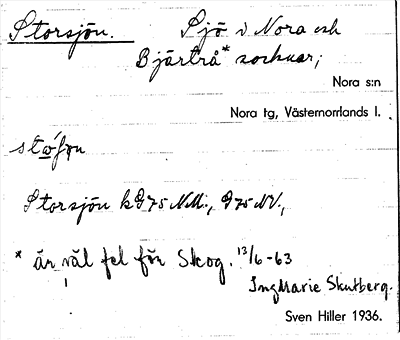 Storsjön. Sjö i Nora och
Bjärtrå* socknar;
Nora s:n
Nora tg, Västernorrlands l.
Storsjön k975 NM:, 975 NV.,
* är väl fel för Skog. 13/6-63
IngMarie Skutberg.
Sven Hiller 1936.